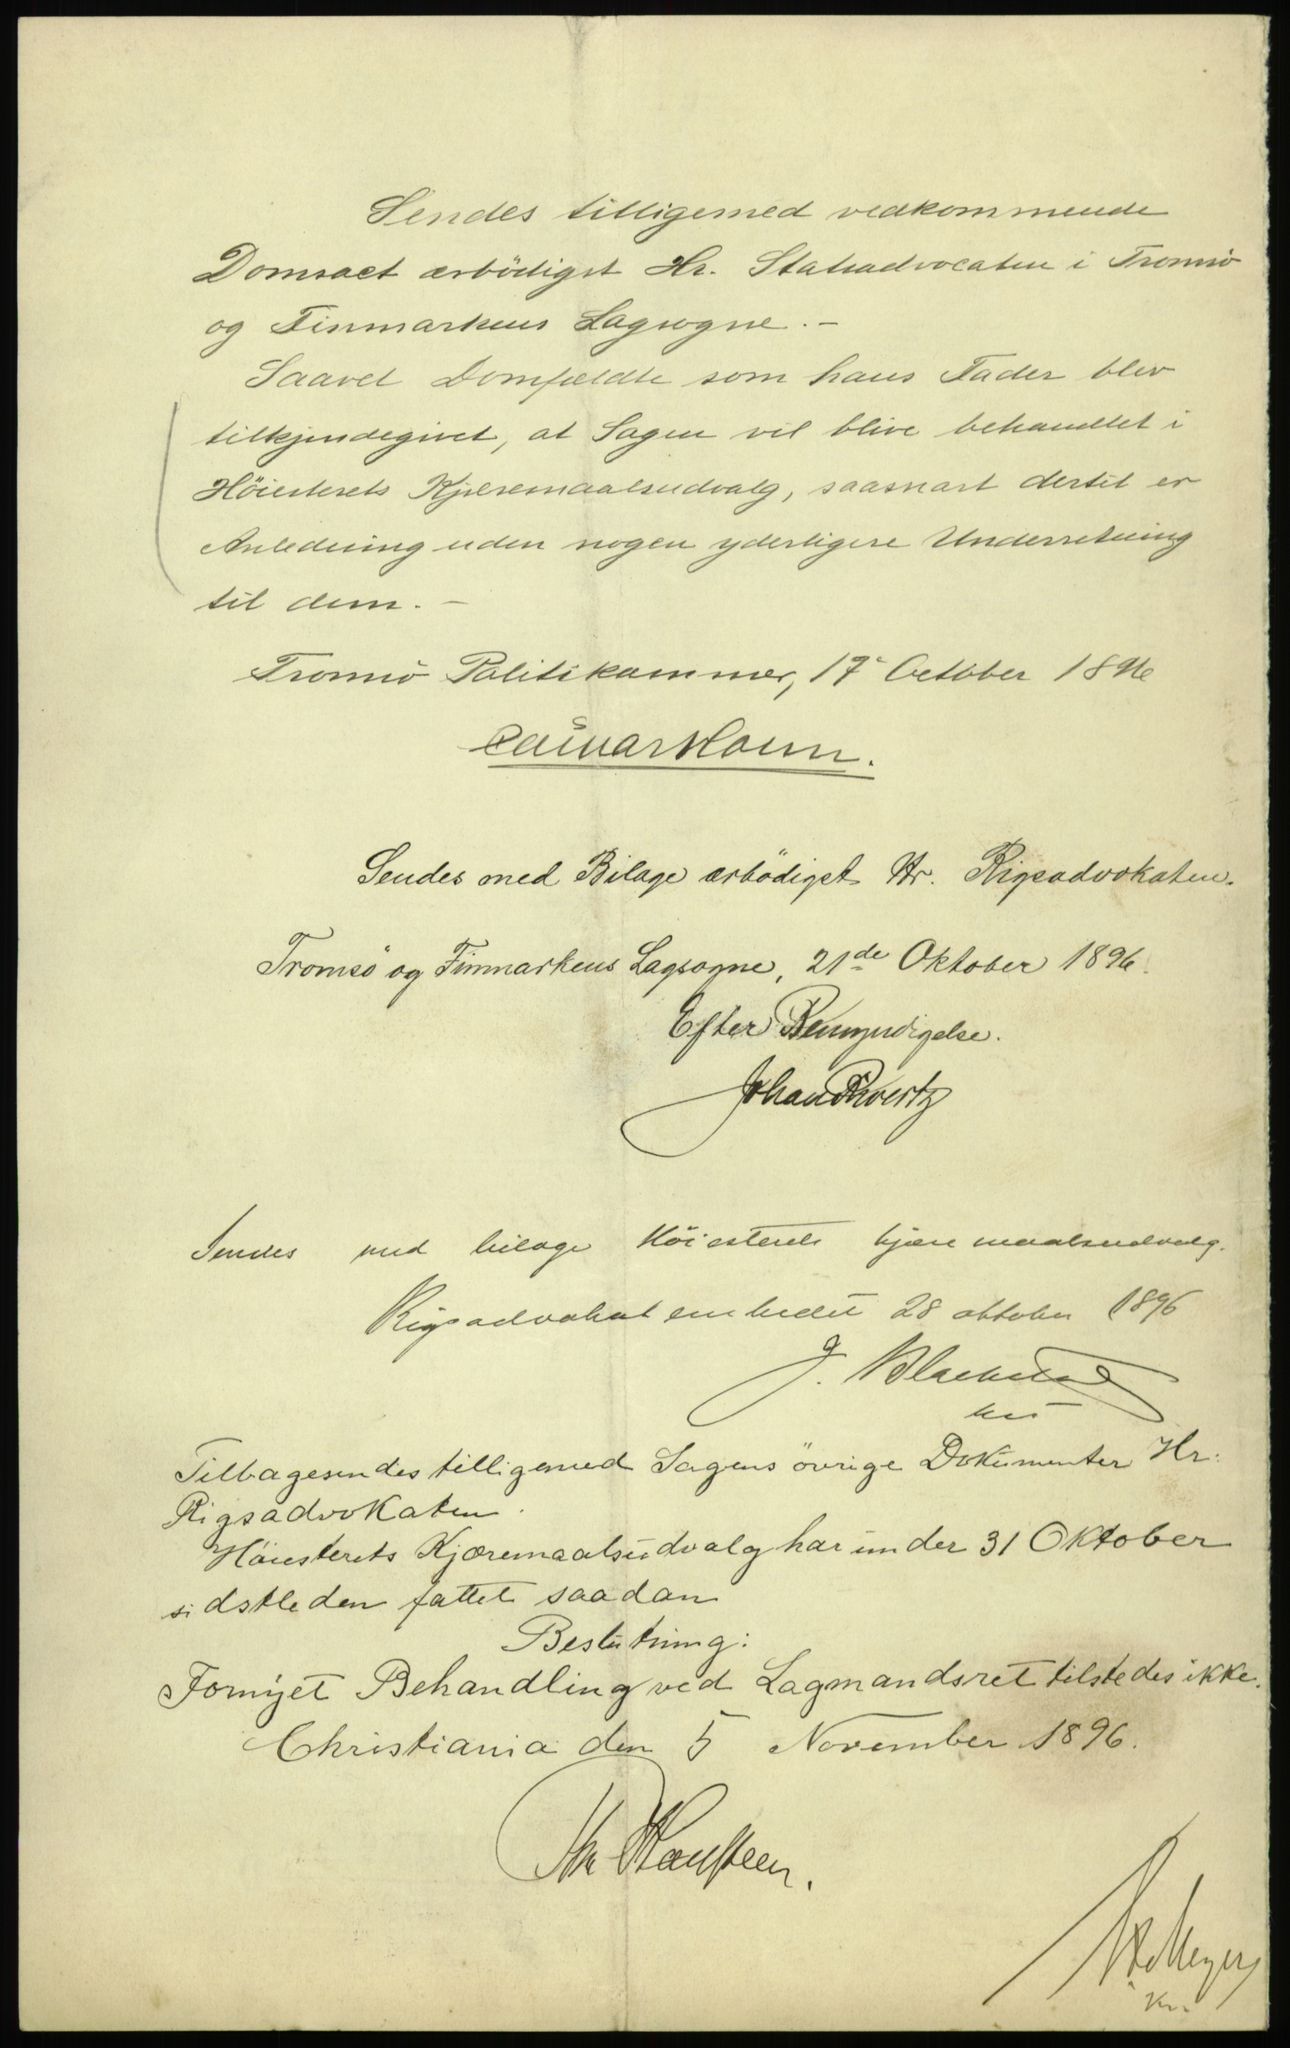 Sendes tilligemed vedkommende
Domsact ærbödigst Hr. Statsadvocaten i Tromsö
og Finmarkens Lagsogne. -
Saavel Domfældte som hans Fader blev
tilkjendegivet, at Sagen vil blive behandlet i
Höiesterets Kjæremaalsudvalg, saasnart dertil er
Anledning uden nogen yderligere Underretning
til dem. -
Tromsö Politikammer, 17 October 1896
Sendes med Bilage ærbödigst Hr. Rigsadvokaten.
Tromsö og Finmarkens Lagsogne, 21de Oktober 1896.
Efter Bemyndigelse.
Johan
Sendes med bilage Höiesterets kjæremaalsudvalg.
Rigsadvokatembedet 28 oktober 1896
J.
Tilbagesendes tilligemed Sagens övrige Dokumenter Hr.
Rigsadvokaten.
Höiesterets Kjæremaalsudvalg har under 31 Oktober
sidstleden fattet saadan
Beslutning:
Fornyet Behandling ved Lagmandsret tilstedes ikke.
Christiania den 5 November 1896.